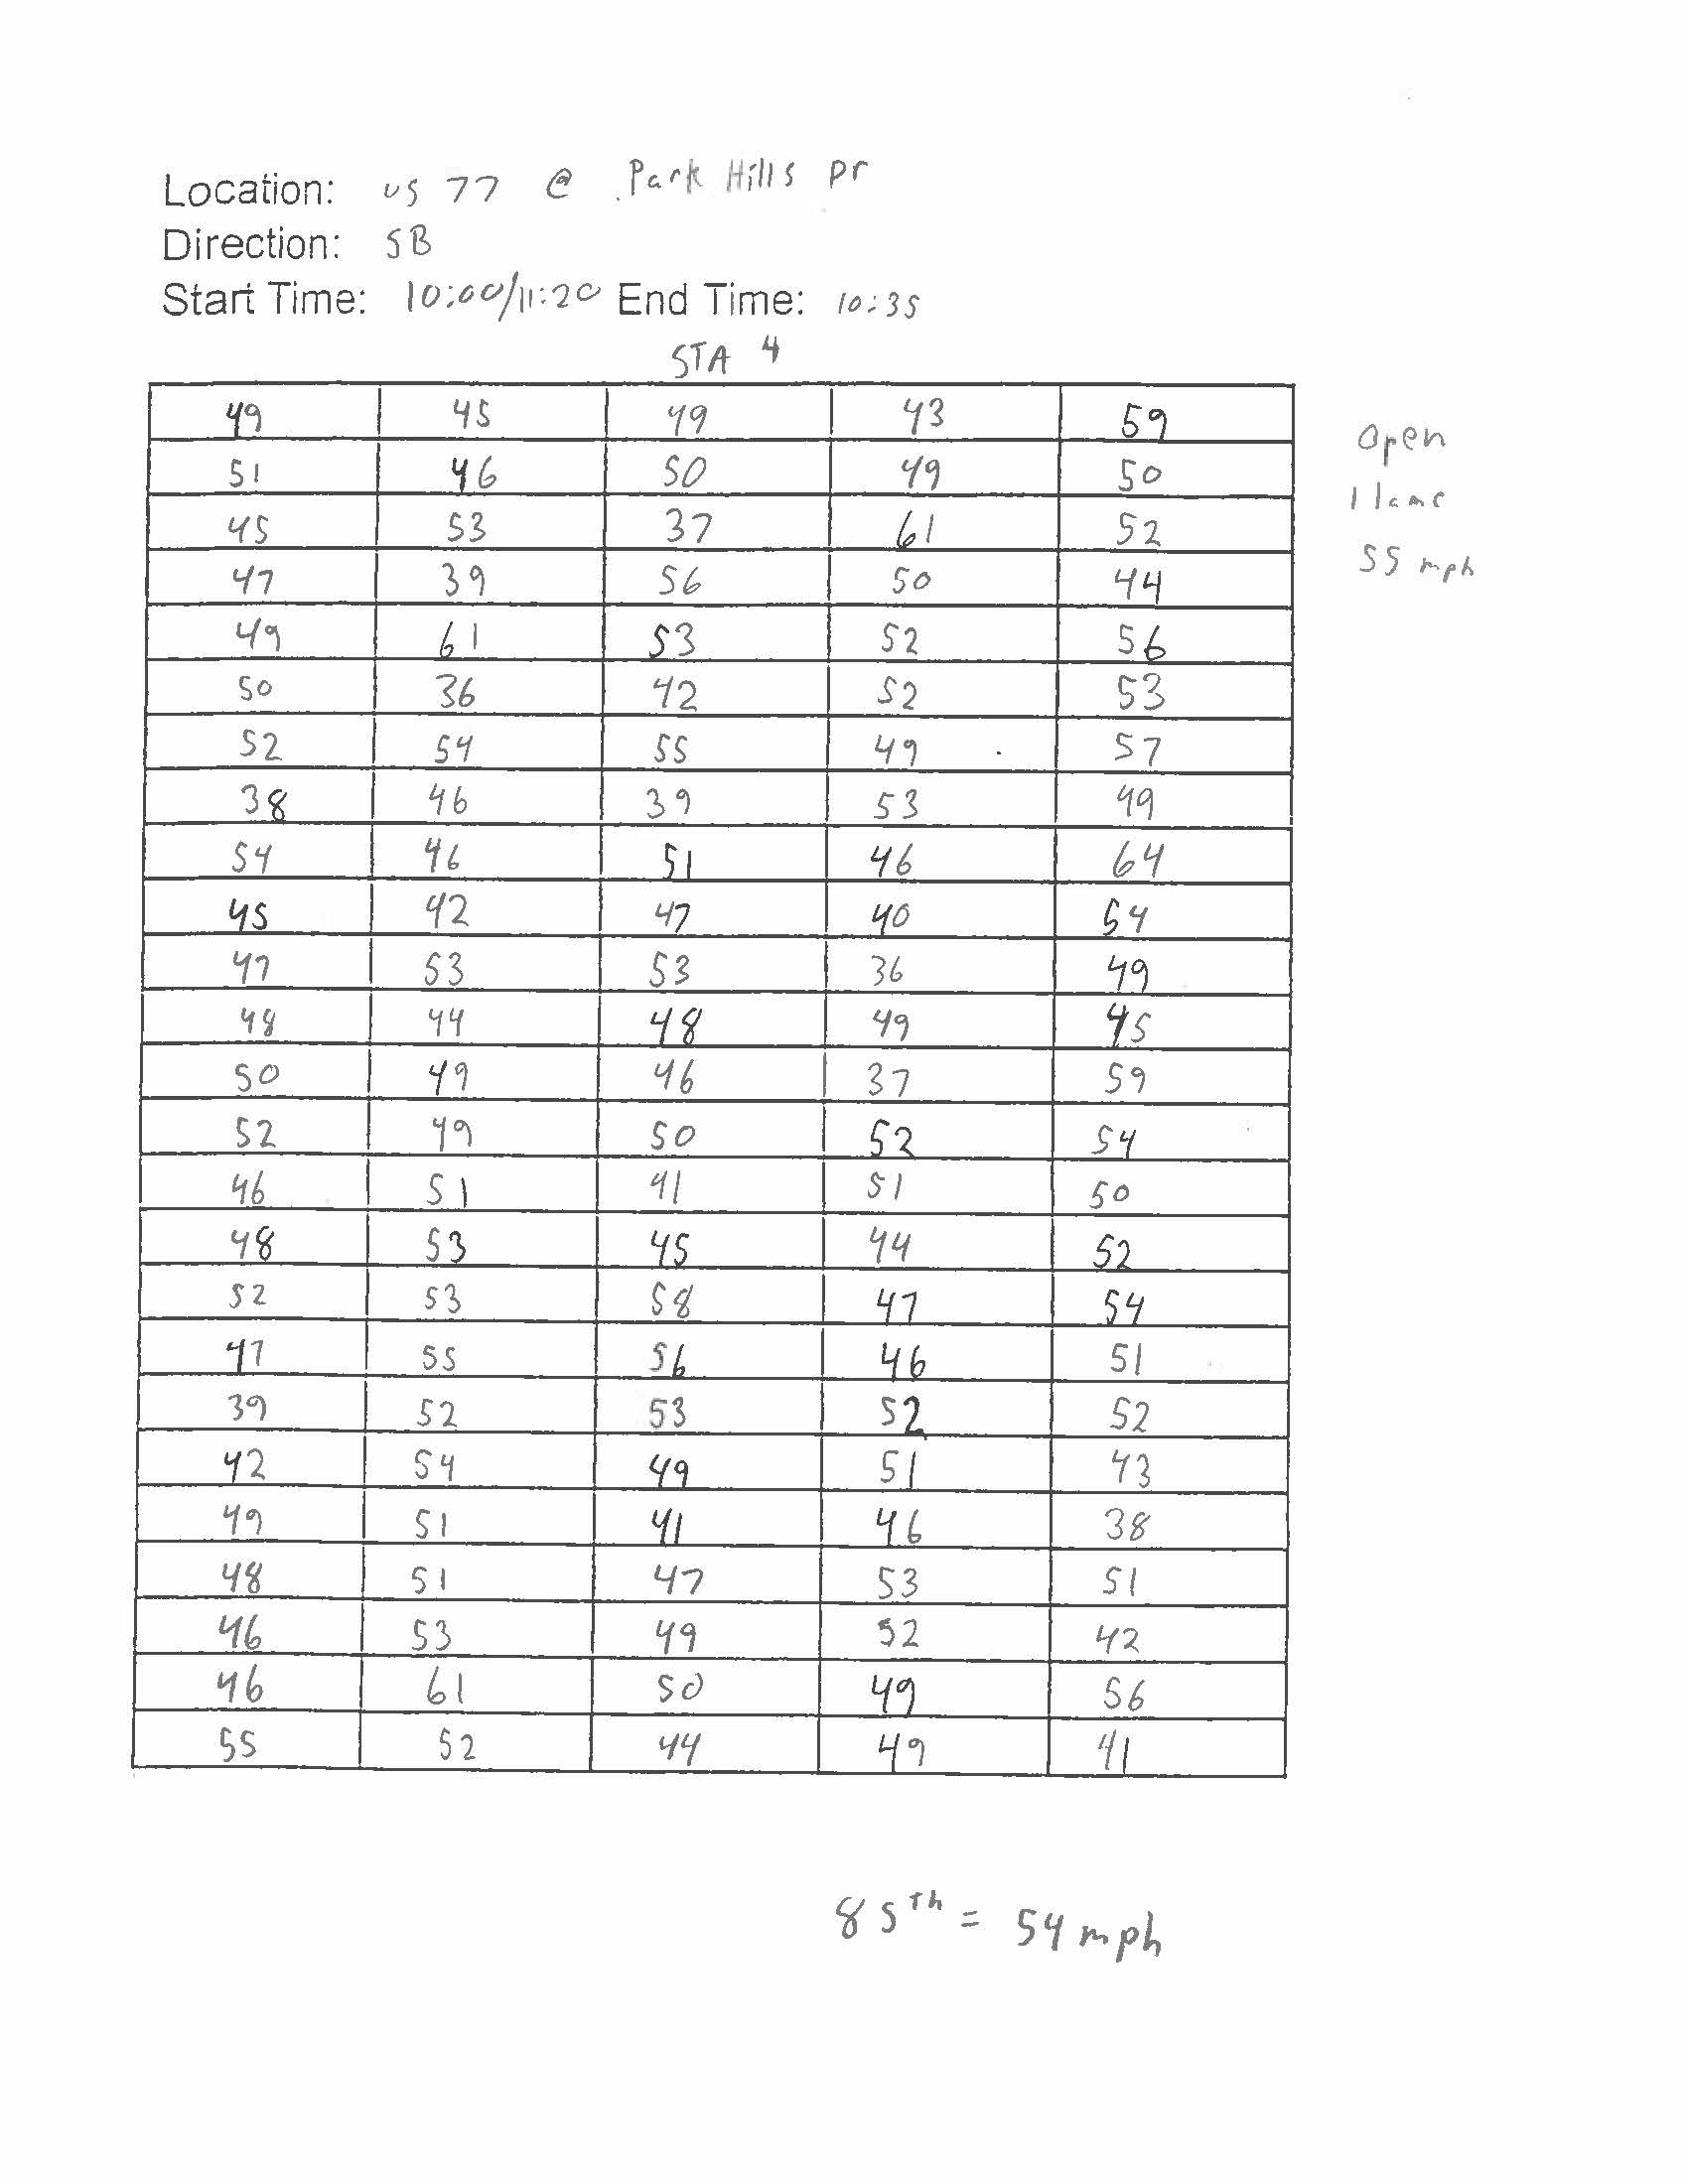 Location: US 77 @ Park Hills Dr
Direction: SB
Start Time: 10:00/11:20 End Time: 10:35
STA 4
49 45 49 43 59
Open
51 46 50 49 50
1 lane
45 53 37 61 52
55 mph
47 39 56 50 44
49 61 53 52 56
50 36 42 52 53
52 54 55 49 57
38 46 39 53 49
54 46 51 46 64
45 42 47 40 54
47 53 53 36 49
48 44 48 49 45
50 49 46 37 59
52 49 50 52 54
46 51 41 51 50
48 53 45 44 52
52 53 58 47 54
47 55 56 46 51
39 52 53 52 52
42 54 49 51 43
49 51 41 46 38
48 51 47 53 51
46 53 49 52 42
46 61 50 49 56
55 52 44 49 41
85th = 54 mph